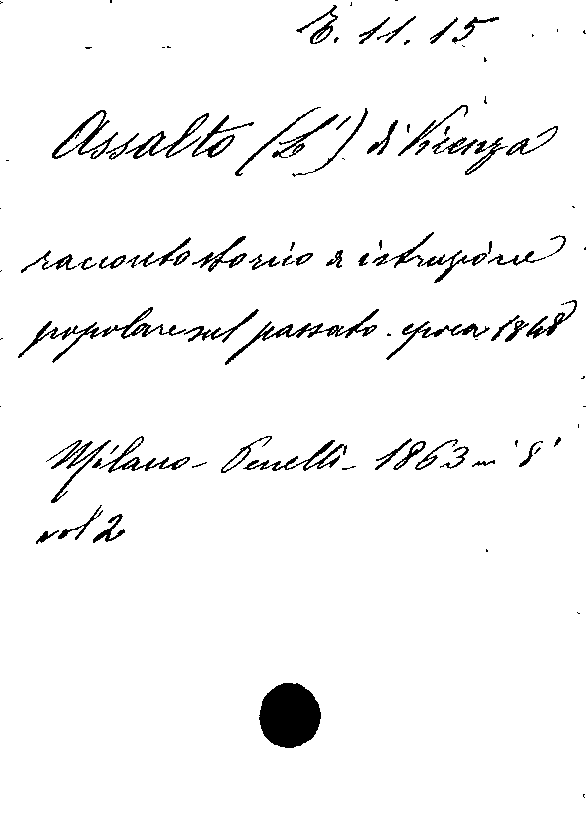 E. 11. 15
Assalto (L') di Vicenza
racconto storico e istruzione
popolare sul passato. epoca 1848
Milano - Penelli - 1863 in 8°
vol 2